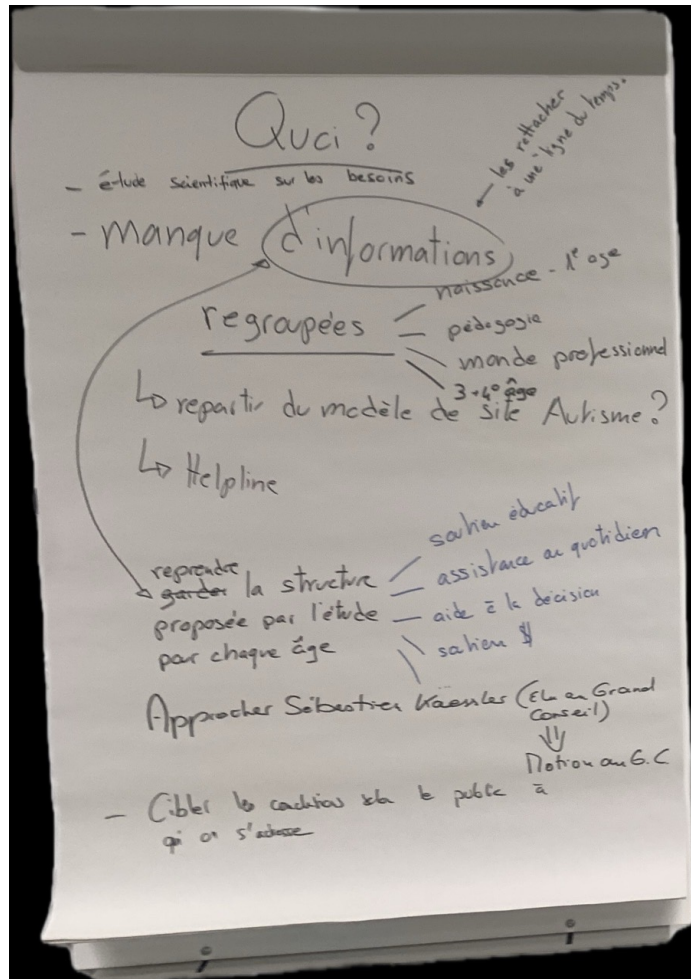 Quoi ?
les rattacher
à une ligne du temps.
- étude scientifique sur les besoins
- manque d'informations
regroupées
naissance - 1e age
pédagogie
monde professionnel
3+4e âge
↳ repartir du modèle de site Autisme ?
↳ Helpline
reprendre
garder la structure
proposée par l'étude
par chaque âge
soutien éducatif
assistance au quotidien
aide à la décision
soutien $
Approcher Sébastien (Elu au Grand
Conseil)
⇓
Motion au G.C
- Cibler les selon le public à
qui on s'adresse